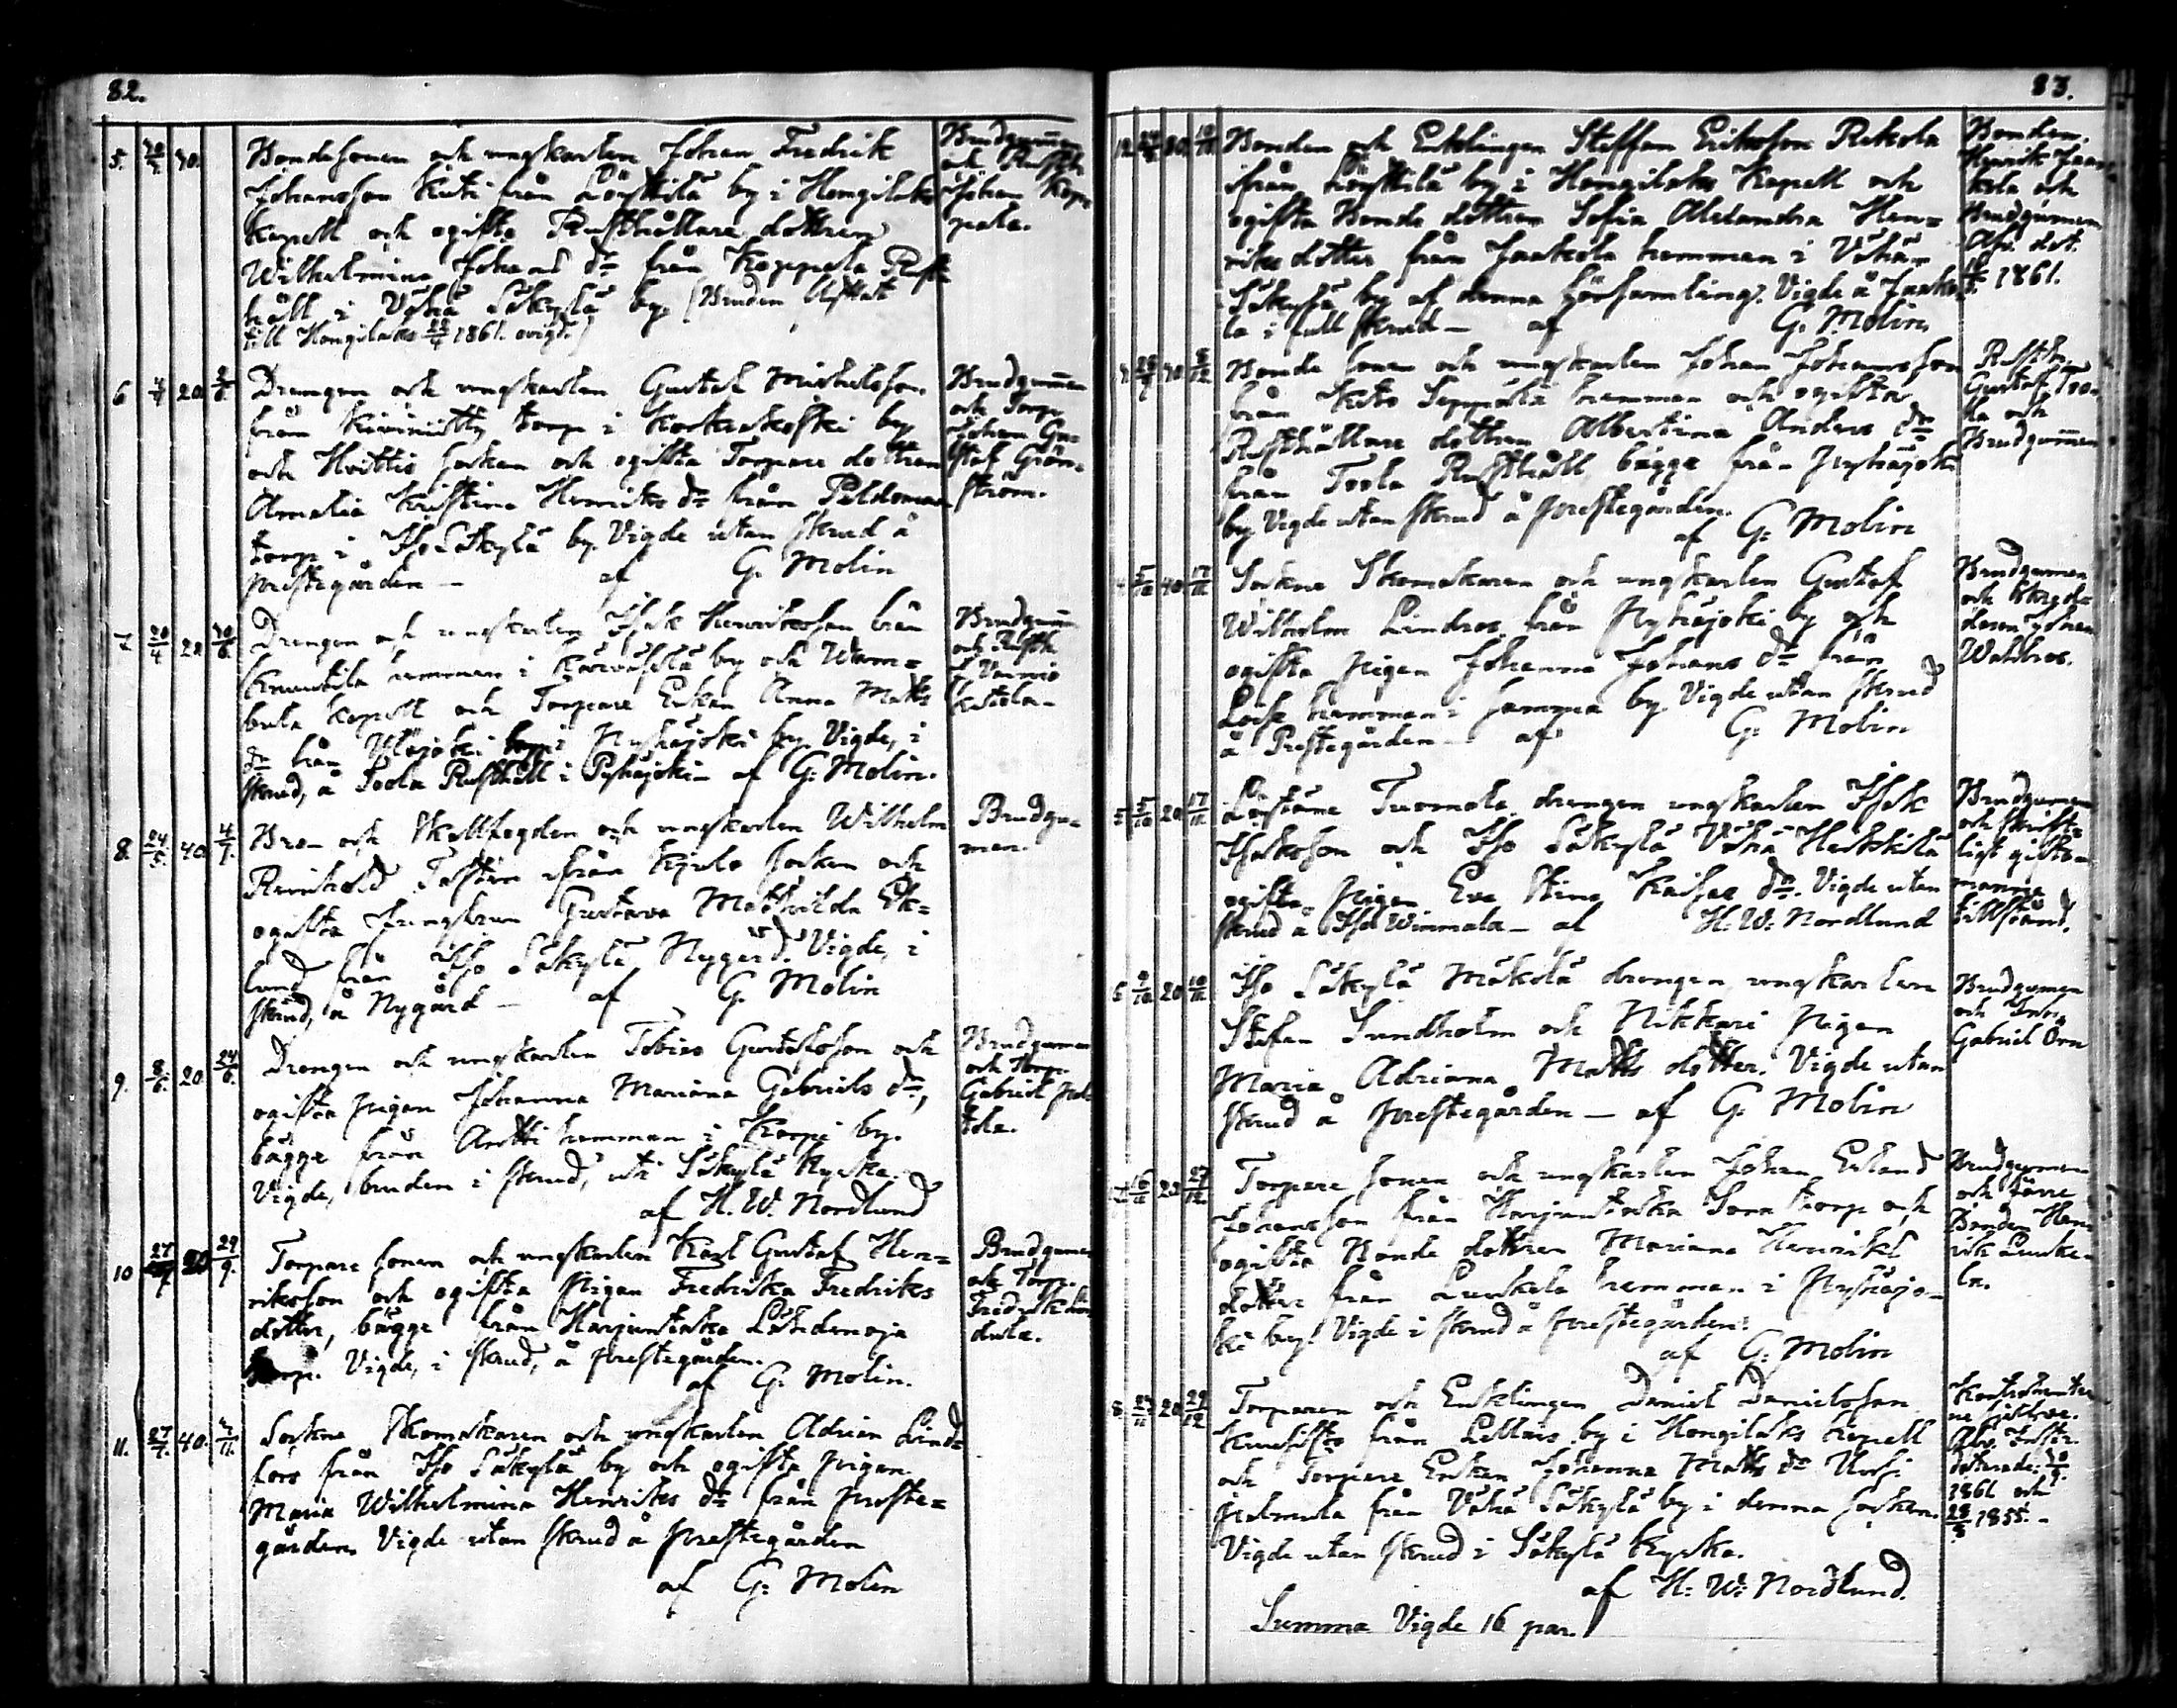 82.
5. 40.
Bondesonen och ungkarlen Johan Fredrik
Johansson Kuti från Löyttilä by i Hongilaks
Kapell och ogifta Rusthållare dottren
Wilhelmina Johans dr från Koppala Rust
håll i Vähä Säkylä by. (Bruden uttfl
till Hongilaks 1861. ovigd.)
Brudgummen
och Rusth.
Johan Kop
pala.
6 20
Drengen och ungkarlen Gustaf Michelsson
från torp i by
och Hvittis socken och ogifta Torpare dottren
Amalia Kristina Henriks dr från Peldoman
torp i Iso Säkylä by. Vigde utan skrud å
prestegården — af G. Molin
Brudgummen
och Torp.
Johan Gu-
staf Grön-
ström.
7. 20/4 20
Drengen och ungkarlen Isak Henriksson från
Knuutila hemman i by och Wam-
bula Kapell och Torpare Enkan Anna Matts
dr från Yläjoki torp i Pyhäjoki by. Vigde, i
skrud, å Toola Rusthåll i Pyhäjoki — af G: Molin.
Brudgum
och Rusth.
8. 24/5 40 4/7.
Bron och Skallfogden och ungkarlen Wilhelm
Reinhold från Kjulo socken och
ogifta Jungfrun Gustava Mathilda Ek-
lund från Iso Säkylä Nygård. Vigde, i
skrud, å Nygård — af G. Molin
Brudgu-
men.
9. 8/6. 20 24/6.
Drengen och ungkarlen Tobias Gustafsson och
ogifta pigan Johanna Mariana Gabriels dr,
bägge från Antti hemman i Korpi by.
Vigde, bruden i skrud, uti Säkylä Kyrka.
af H. W. Nordlund
Brudgumen
och Torp.
Gabriel
10 20 29/9.
Torpare sonen och ungkarlen Karl Gustaf Hen-
riksson och ogifta Pigan Fredrika Fredriks
dotter, bägge från Harjuntaka Lähdenoja
torp. Vigde, i skrud, å prestegården.
af G. Molin.
Brudgumen
och Torp.
Fredrik
11. 27/7. 40.
Sockne Skomakaren och ungkarlen Adrian Lind-
fors från Iso Säkylä by och ogifta pigan
Maria Wilhelmina Henriks dr från preste-
gården. Vigde utan skrud å prestegården
af G: Molin
83.
12 80
Bonden och Enklingen Staffan Eriksson Rekola
ifrån Löyttilä by i Hongilaks Kapell och
ogifta Bonde dottren Sofia Alexandra Hen-
riks dotter från Jaakola hemman i Vähä
Säkylä by af denna församling. Vigde å Jaako
la i full skrud — af G. Molin.
Bonden
Henrik Jaa-
kola och
Brudgumen
Afv. dat.
1861.
40
Bonde sonen och ungkarlen Johan Johansson
från Seppälä hemman och ogifta
Rusthållare dottren Albertina Anders dr
från Toola Rusthåll bägge från Pyhäjoki
by. Vigde utan skrud å prestegården.
af G: Molin
Rusth.
Gustaf Too-
la och
Brudgummen
40 17/11
Sockne Skomakaren och ungkarlen Gustaf
Wilhelm Lindros från Pyhäjoki by och
ogifta pigan Johanna Johans dr från
hemman i samma by. Vigde utan skrud
å Prestegården — af G: Molin
Brudgumen
och Skräd-
daren Johan
Wahlros.
5/10 20 17/11
Tuomola drengen ungkarlen Isak
Isaksson och Iso Säkylä Vähä Heikkilä
ogifta pigan Eva Stina Kaisas dr. Vigde utan
skrud å Iso Winnala — af H. W: Nordlund
Brudgumen
och skrift-
ligt gifto-
manna
tillstånd.
20
Iso Säkylä Mäkilä drengen ungkarlen
Stefan Sundholm och Nikkari Pigan
Maria Adriana Matts dotter. Vigde utan
skrud å prestegården — af G: Molin
Brudgumen
och Inh.
Gabriel Örn
27/12
Torpare sonen och ungkarlen Johan Erland
Johansson från Harjuntaka torp och
ogifta Bonde dottren Mariana Henriks
dotter från Lunkela hemman i Pyhäjo-
ki by. Vigde i skrud å prestegården.
af G: Molin
Brudgumen
och förre
Bonden Hen
rik Lunke-
la.
20 29/12
Torparen och Enklingen Daniel Danielsson
från by i Hongilaks Kapell
och Torpare Enkan Johanna Matts dr Uusi
från Vähä Säkylä by i denna socken.
Vigde utan skrud i Säkylä Kyrka.
af H: W: Nordlund.
1861 och
1855. -
Summa Vigde 16 par.